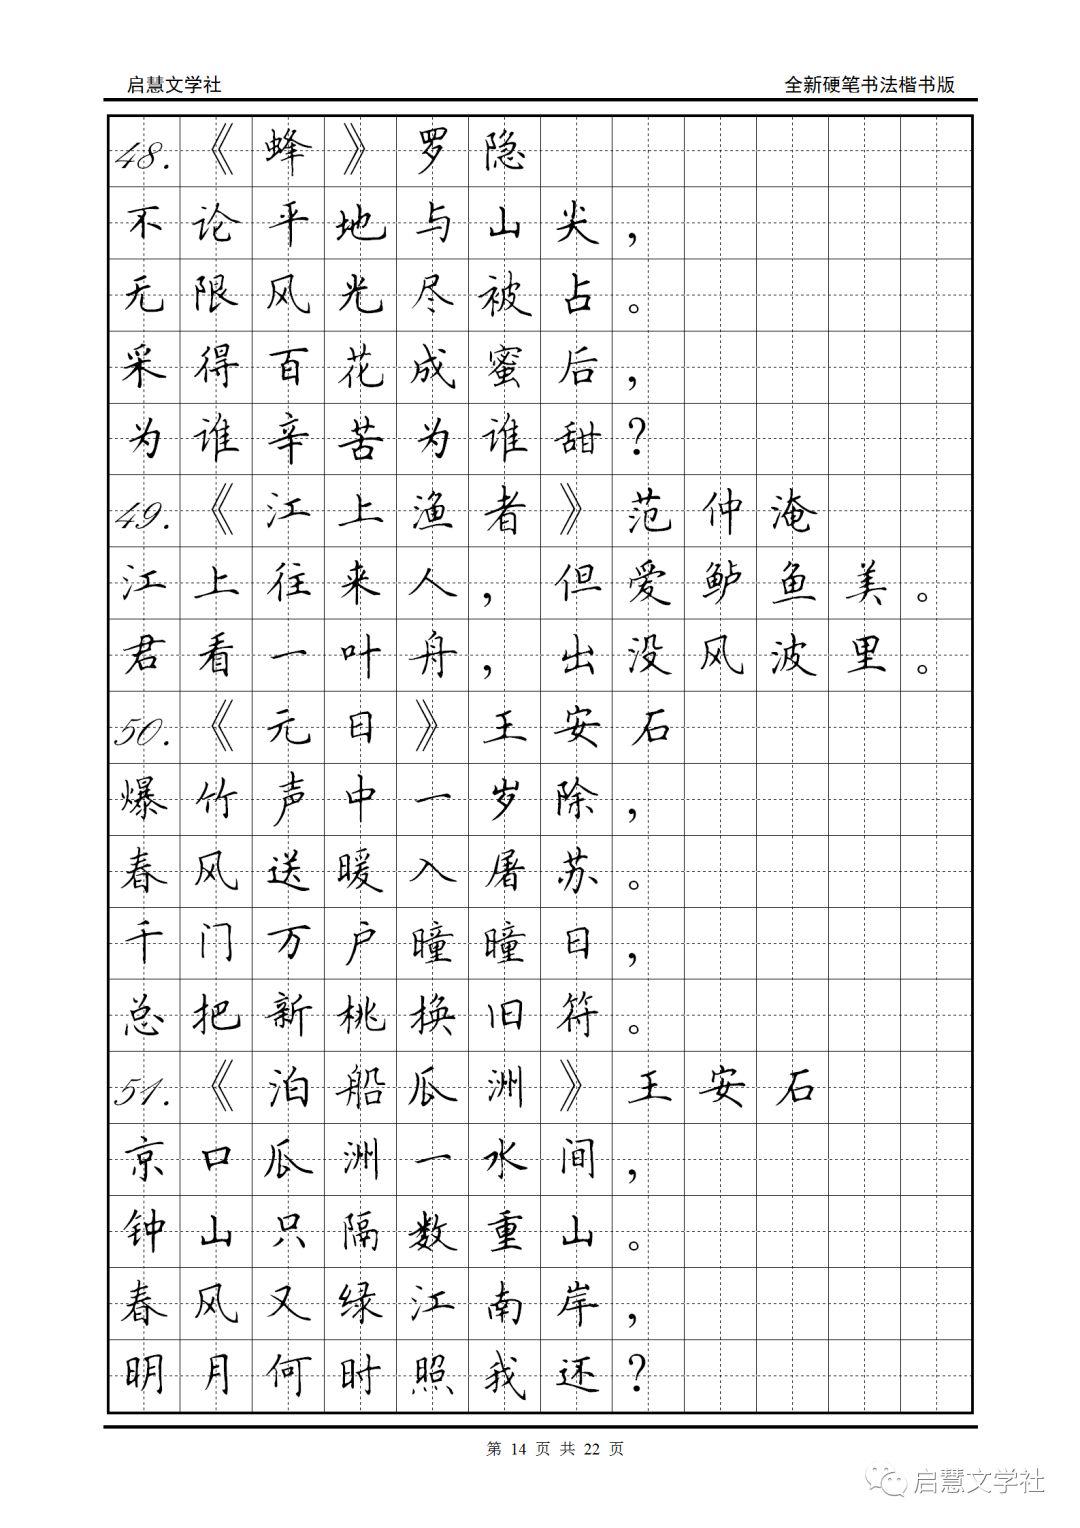 启慧文学社 全新硬笔书法楷书版
48.《蜂》罗隐
不论平地与山尖，
无限风光尽被占。
采得百花成蜜后，
为谁辛苦为谁甜？
49.《江上渔者》范仲淹
江上往来人，但爱鲈鱼美。
君看一叶舟，出没风波里。
50.《元日》王安石
爆竹声中一岁除，
春风送暖入屠苏。
千门万户曈曈日，
总把新桃换旧符。
51.《泊船瓜洲》王安石
京口瓜洲一水间，
钟山只隔数重山。
春风又绿江南岸，
明月何时照我还？
第 14 页 共 22 页
启慧文学社